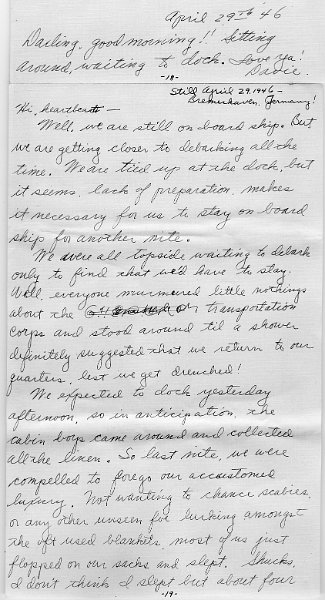 April 29th '46
Darling, good morning!! Sitting
around, waiting to dock. Love ya!
Dave.
-18-
Still April 29, 1946 -
Bremerhaven, Germany!
Hi, heartbeat -
Well, we are still on board ship. But
we are getting closer to debarking all the
time. We are tied up at the dock, but
it seems, lack of preparation, makes
it necessary for us to stay on board
ship for another nite.
We were all topside waiting to debark
only to find that we'd have to stay.
Well everyone murmured little nothings
about the transportation
corps and stood around til a shower
definitely suggested that we return to our
quarters, lest we get drenched!
We expected to dock yesterday
afternoon, so in anticipation, the
cabin boys came around and collected
all the linen. So last nite, we were
compelled to forego our accustomed
luxury. Not wanting to chance scabies,
or any other unseen foe lurking amongst
the oft used blankets, most of us just
flopped on our sacks and slept. Shucks,
I don't think I slept but about four
-19-